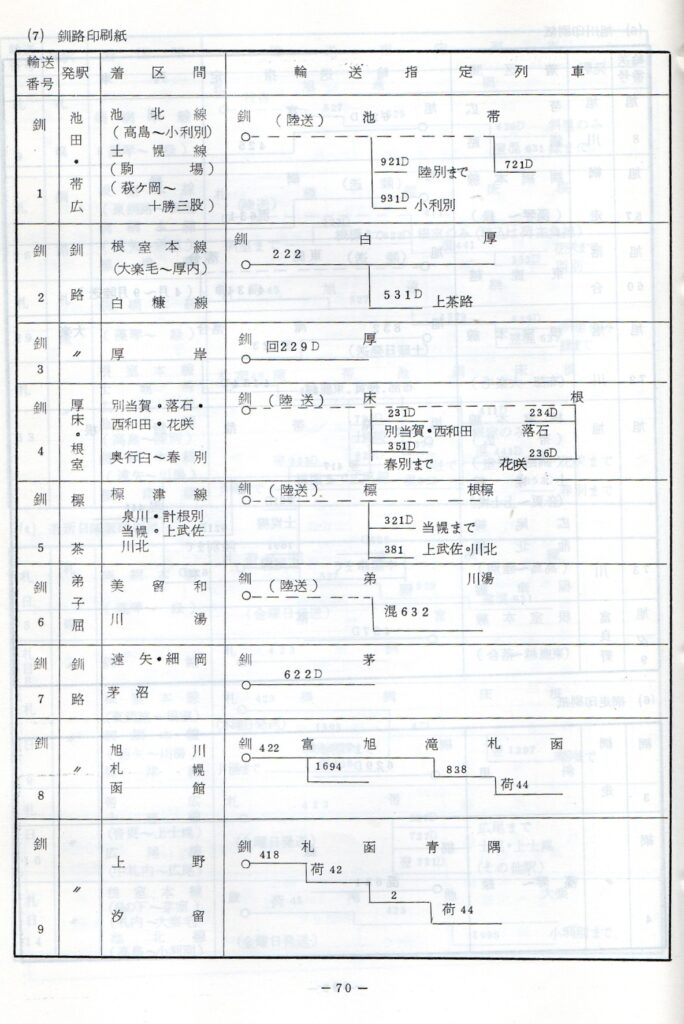 (7) 釧路印刷紙
輸送番号 発駅 着区間 輸送指定列車
釧1 池田・帯広 池北線
(高島〜小利別)
士幌線
(駒場)
(萩ケ岡〜
十勝三股)
釧 (陸送) 池 帯
921D 陸別まで 721D
931D 小利別
釧2 釧路 根室本線
(大楽毛〜厚内)
白糠線
釧 白 厚
222
531D 上茶路
釧3 〃 厚岸
釧 厚
回229D
釧4 厚床・根室 別当賀・落石・
西和田・花咲
奥行臼〜春別
釧 (陸送) 床 根
231D 234D
別当賀・西和田 落石
351D 236D
春別まで 花咲
釧5 標茶 標津線
泉川・計根別
当幌・上武佐
川北
釧 (陸送) 標 根標
321D 当幌まで
381 上武佐・川北
釧6 弟子屈 美留和
川湯
釧 (陸送) 弟 川湯
混632
釧7 釧路 遠矢・細岡
茅沼
釧 茅
622D
釧8 〃 旭川
札幌
函館
釧 422 富 旭 滝 札 函
1694 838 荷44
釧9 〃 上野
汐留
釧 札 函 青 隅
418 荷42 2 荷44
－70－